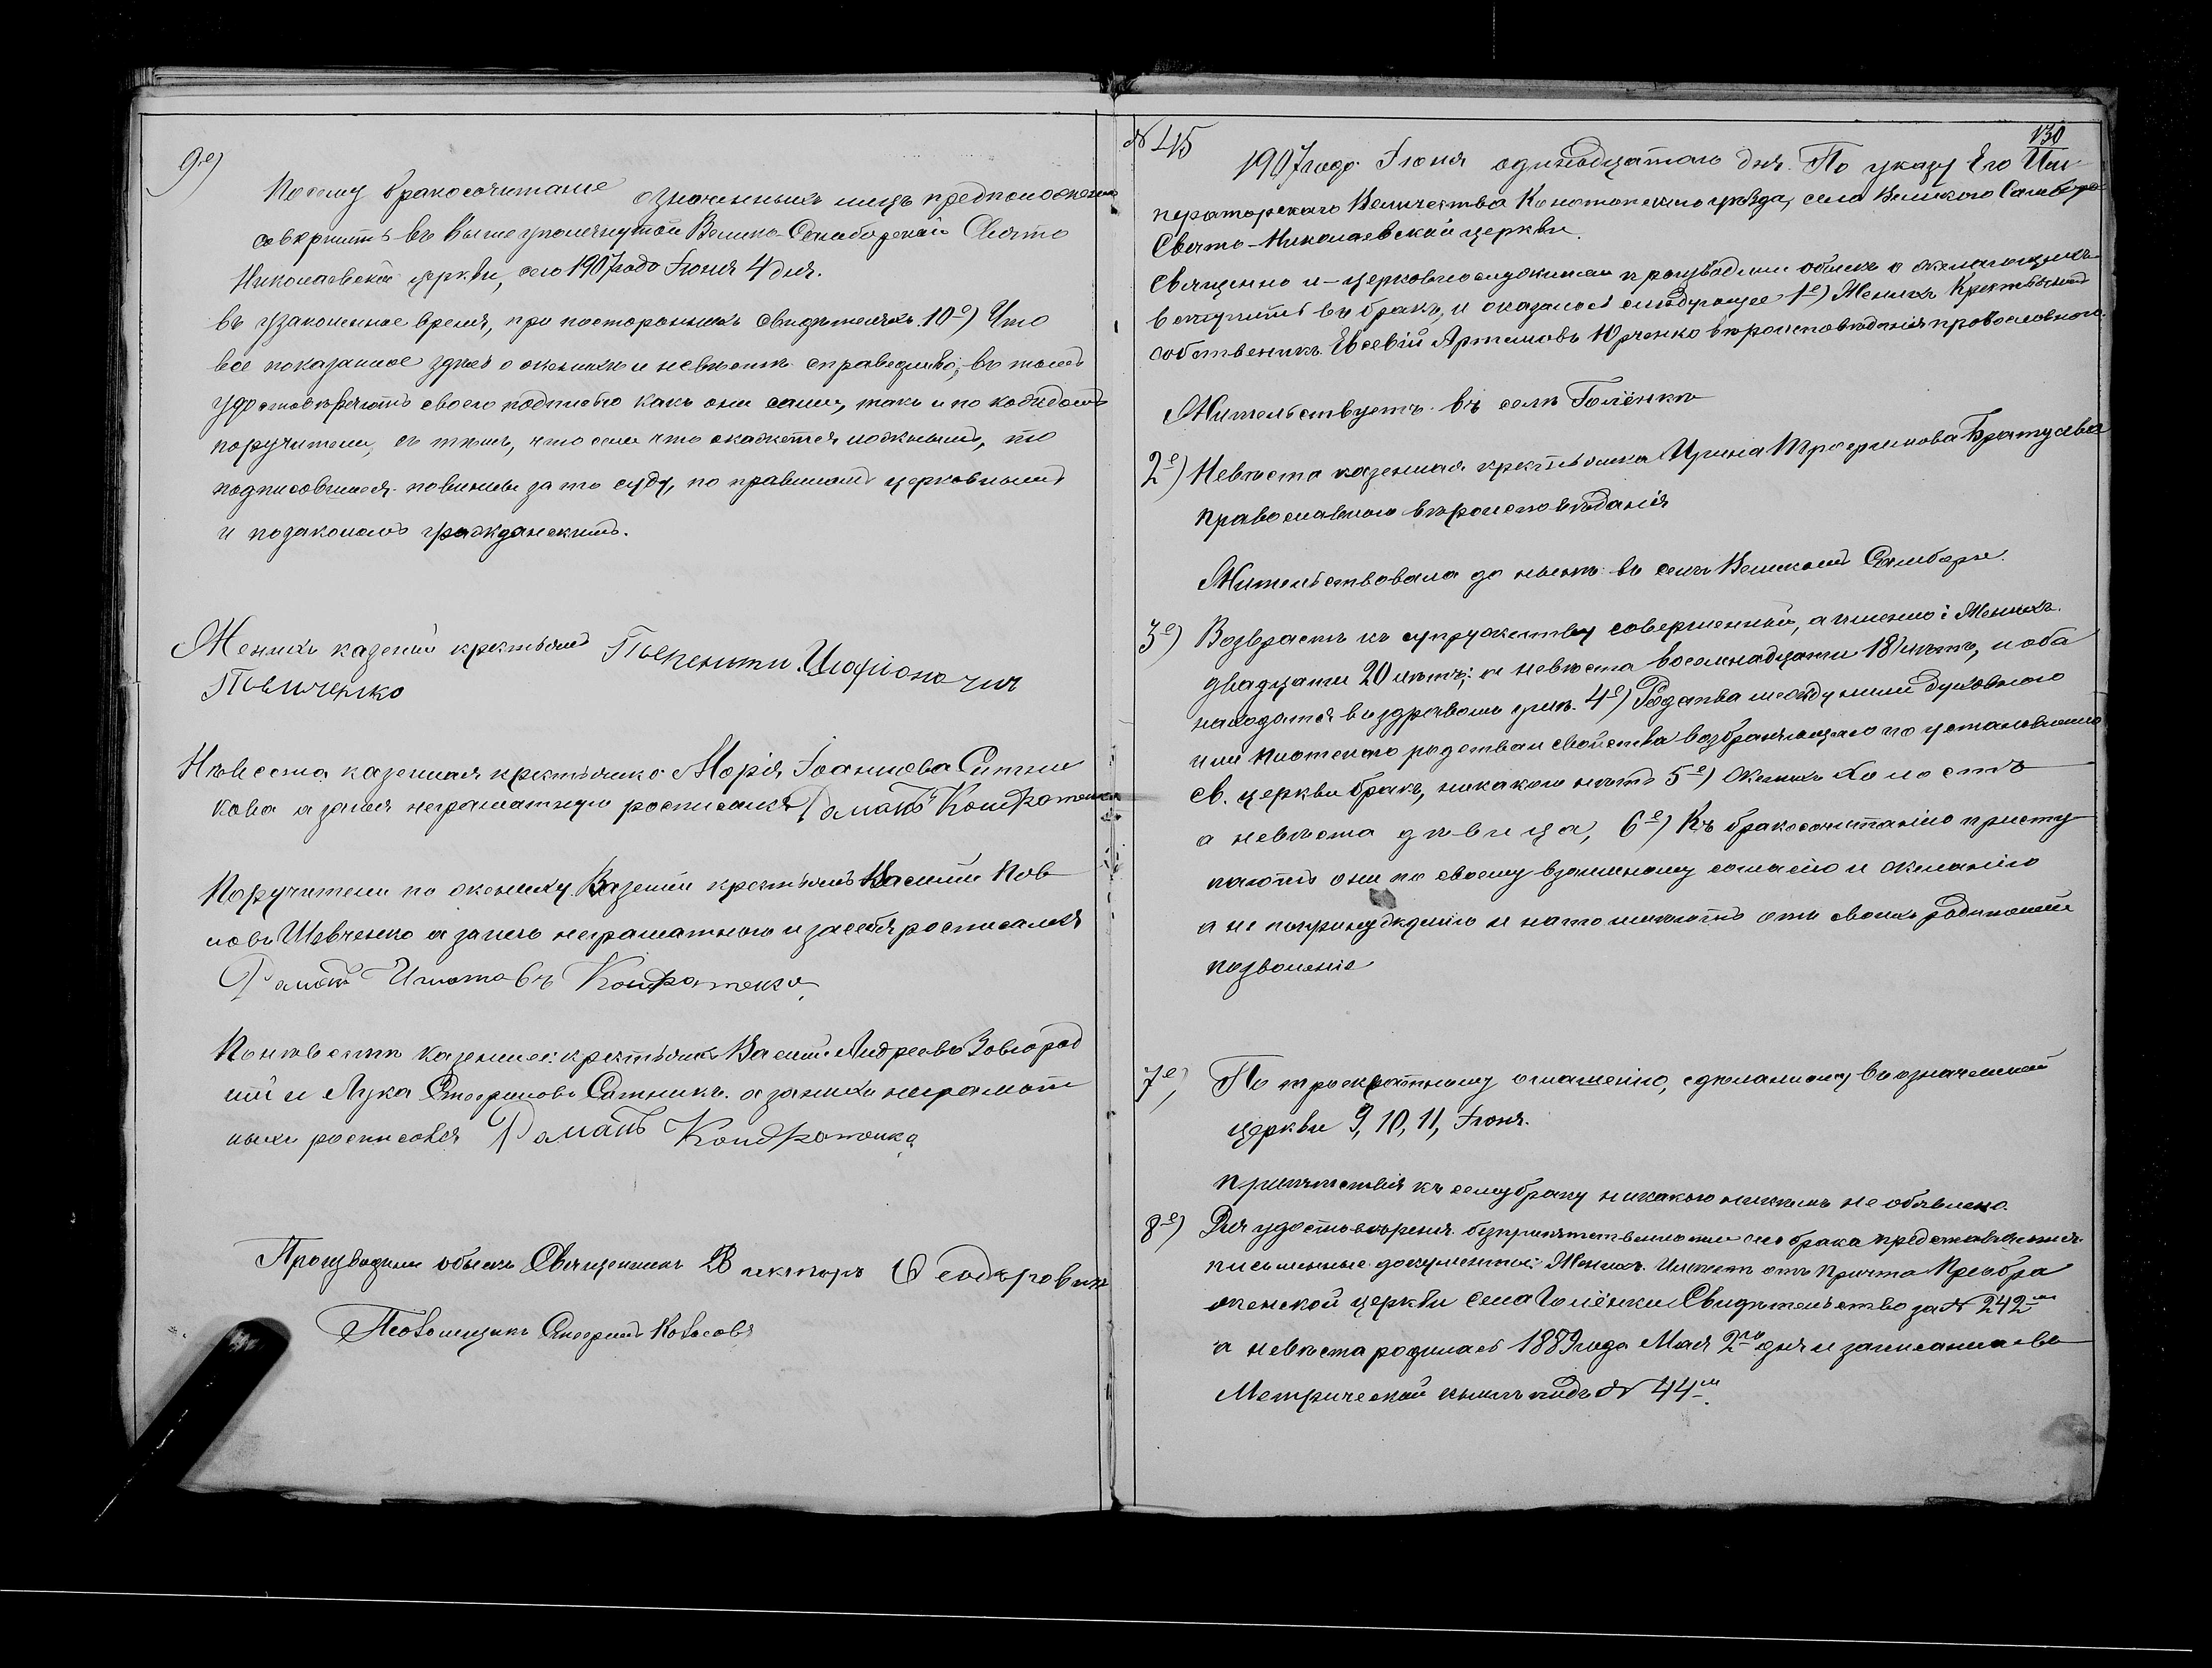 9е)
Посему бракосочитание означенныхъ лицъ предположено
совершить въ выше упомянутой Велико-Самборской Свято
Николаевской церкви, сего 1907 года Іюня 4 дня.
въ узаконенное время, при постороннихъ свидѣтеляхъ. 10-е) Что
все показанное здѣсь о женихѣ и невѣстѣ справедливо, въ томъ
удостовѣряютъ своею подписью какъ они сами, такъ и по каждомъ
поручители, съ тѣмъ, что если что окажется ложнымъ, то
подписовшиеся повинны за то суду, по правиламъ церковнымъ
и по законамъ гражданскимъ.
Женихъ казений крестьянъ
Невѣста казенная крестьянка Марія Іоаннова Ситни
кова а за нея неграматную росписался Раманъ Кондратенко
Поручители по жениху Казений крестьянъ Василий Пав
ловъ Шевченко а за него неграматного и за себя росписался
Раманъ Игнатовъ Кондратенко
По невѣсте казенные крестьяне Василий Андреевъ Завгород
ний и Лука Стефановъ Ситникъ а за нихъ неграмот
ныхъ росписался Раманъ Кондратенко
Производили обыскъ Священникъ Викторъ Феодоровичъ
Псаломщикъ Стефанъ
№ 45
130
1907 года Іюня одинадцатаго дня. По указу Его Им
ператорскаго Величества Конотопскаго уѣзда, села Великого Самбора
Свято-Николаевской церкви.
Священно и-церковнослужители производили обыскъ о желающихъ
вступить въ бракъ, и оказалось слѣдующее 1е) Женихъ Крестьянинъ
собственикъ Евсевій Артемовъ Юрченко вѣроисповѣданія православного.
Жительствуетъ въ селѣ Голёнкѣ
2е) Невѣста казенная крестьянка Ирина Трофимова Братусева
православного вѣроисповѣданія
Жительствовала до нынѣ въ селѣ Великомъ Самборѣ.
3е) Возврастъ къ супружеству совершенный, а именно: Женихъ
двадцати 20 лѣтъ; а невѣста восемнадцати 18 лѣтъ, и оба
находятся въ здравомъ умѣ. 4е) Родства между ними духовного
или плотского родства и свойства возбраняющаго по установлению
св. церкви бракъ, никакого нѣтъ 5е) Женихъ Холостъ
а невѣста дѣвица, 6е) Къ бракосочитанію присту
паютъ они по своему взаимному согласію и желанію
а не по принуждению и на то имѣютъ отъ своихъ родителей
позволение
7е) По троекратному оглашению, сделанному въ означенной
церкви 9, 10, 11, Іюня.
препятствія къ сему браку никакого никемъ не объявлено.
8е) Для удостовѣрения безпрепятственности сего брака представляются
письменные документы: Женихъ имеетъ отъ Причта Преобра
женской церкви села Голёнки Свидѣтельство за № 242м
а невѣста родилась 1889 года Мая 2го дня и записанна въ
Метрической книгѣ подъ № 44м.